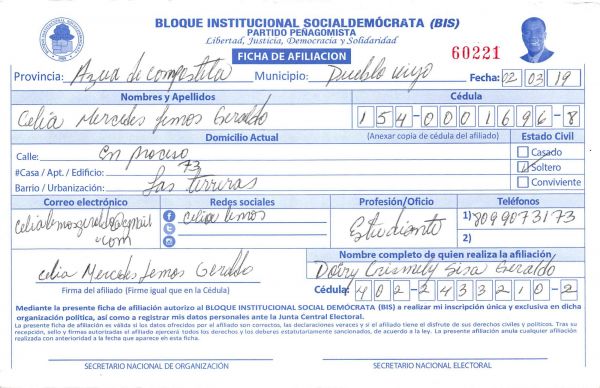 BLOQUE INSTITUCIONAL SOCIALDEMÓCRATA (BIS)
PARTIDO PEÑAGOMISTA
Libertad, Justicia, Democracia y Solidaridad
FICHA DE AFILIACION
60221
Provincia: Azua de compostela Municipio: Pueblo viejo Fecha: 02 03 19
Nombres y Apellidos Cédula
Celia Mercedes lemos Geraldo 154-0001696-8
Domicilio Actual (Anexar copia de cédula del afiliado) Estado Civil
Calle: En proceso Casado
#Casa / Apt. / Edificio: 73 Soltero
Barrio / Urbanización: Las terreras Conviviente
Correo electrónico Redes sociales Profesión/Oficio Teléfonos
celialemosgeraldo@gmail celia lemos Estudiante 1) 8099073173
.com 2)
Nombre completo de quien realiza la afiliación
Celia Mercedes lemos Geraldo Crismely Sisa Geraldo
Firma del afiliado (Firme igual que en la Cédula) Cédula: 402-2433210-2
Mediante la presente ficha de afiliación autorizo al BLOQUE INSTITUCIONAL SOCIAL DEMÓCRATA (BIS) a realizar mi inscripción única y exclusiva en dicha
organización política, así como a registrar mis datos personales ante la Junta Central Electoral.
La presente ficha de afiliación es válida si los datos ofrecidos por el afiliado son correctos, las declaraciones veraces y si el afiliado tiene el disfrute de sus derechos civiles y políticos. Tras su
recepción, sello y firmas autorizadas el afiliado ejercerá todos los derechos y los deberes estatutariamente sancionados, de acuerdo a la ley. La presente afiliación anula cualquier afiliación
realizada con anterioridad a la fecha que aparece en esta ficha.
SECRETARIO NACIONAL DE ORGANIZACIÓN SECRETARIO NACIONAL ELECTORAL